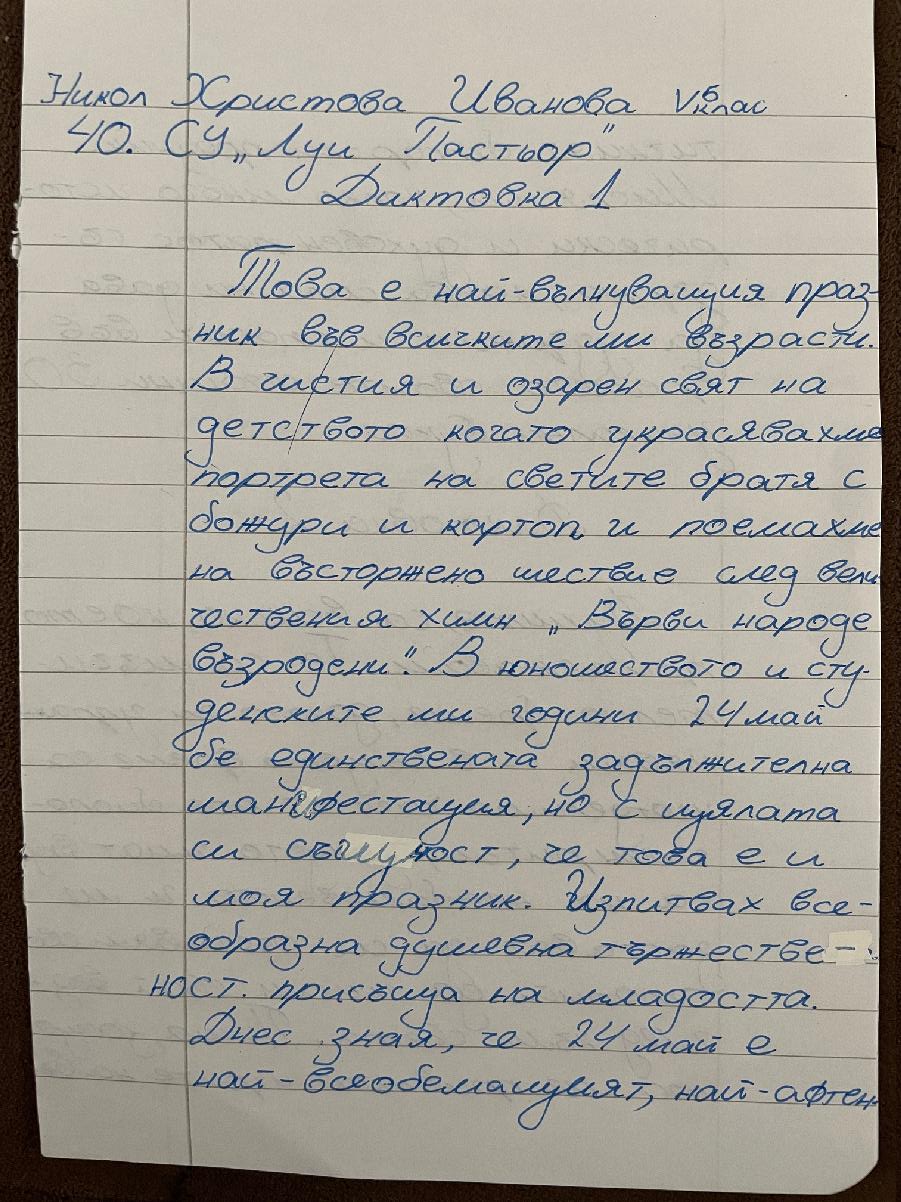 Никол Христова Иванова Vб клас
40. СУ „Луи Пастьор"
Диктовка 1
Това е най-вълнуващия праз-
ник във всичките ми възрасти.
В чистия и озарен свят на
детството когато украсявахме
портрета на светите братя с
божури и картоп и поемахме
на въсторжено шествие след вели
чествения химн „Върви народе
възродени". В юношеството и сту-
денските ми години 24 май
бе единствената задължителна
манифестация, но с цялата
си същност, че това е и
моя празник. Изпитвах все-
образна душевна тържестве-
ност. присъща на младостта.
Днес зная, че 24 май е
най-всеобемащият, най-афтен